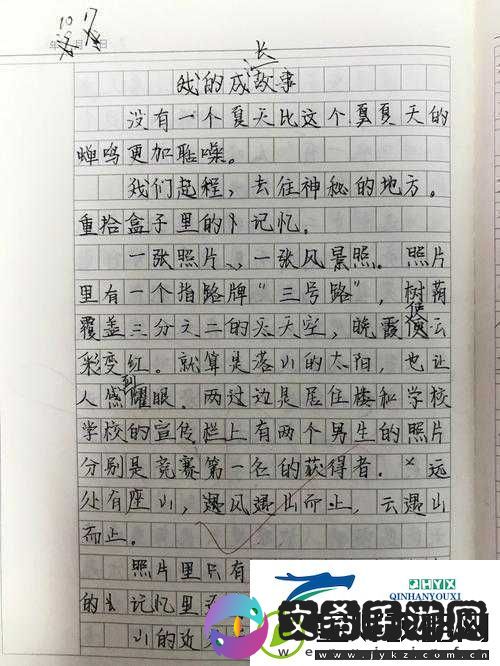 10 17
年 月 日
我的成长故事
没有一个夏天比这个夏夏天的
蝉鸣更加聒噪。
我们起程，去往神秘的地方。
重拾盒子里的卜记忆。
一张照片、一张风景照。照片
里有一个指路牌“三号路”，树荫
覆盖三分之二的天空，晚霞使云
彩变红。就算是落山的太阳，也让
人感到耀眼。两过边是居住楼和学校
学校的宣传栏上有两个男生的照片
分别是竞赛第一名的获得者。远
处有座山，遇风遇山而止，云遇山
而止。
照片里只有
的卜记忆里
山的近
PHYX
QINHANYOUXI
文希手游网
www.jykz.com.cn